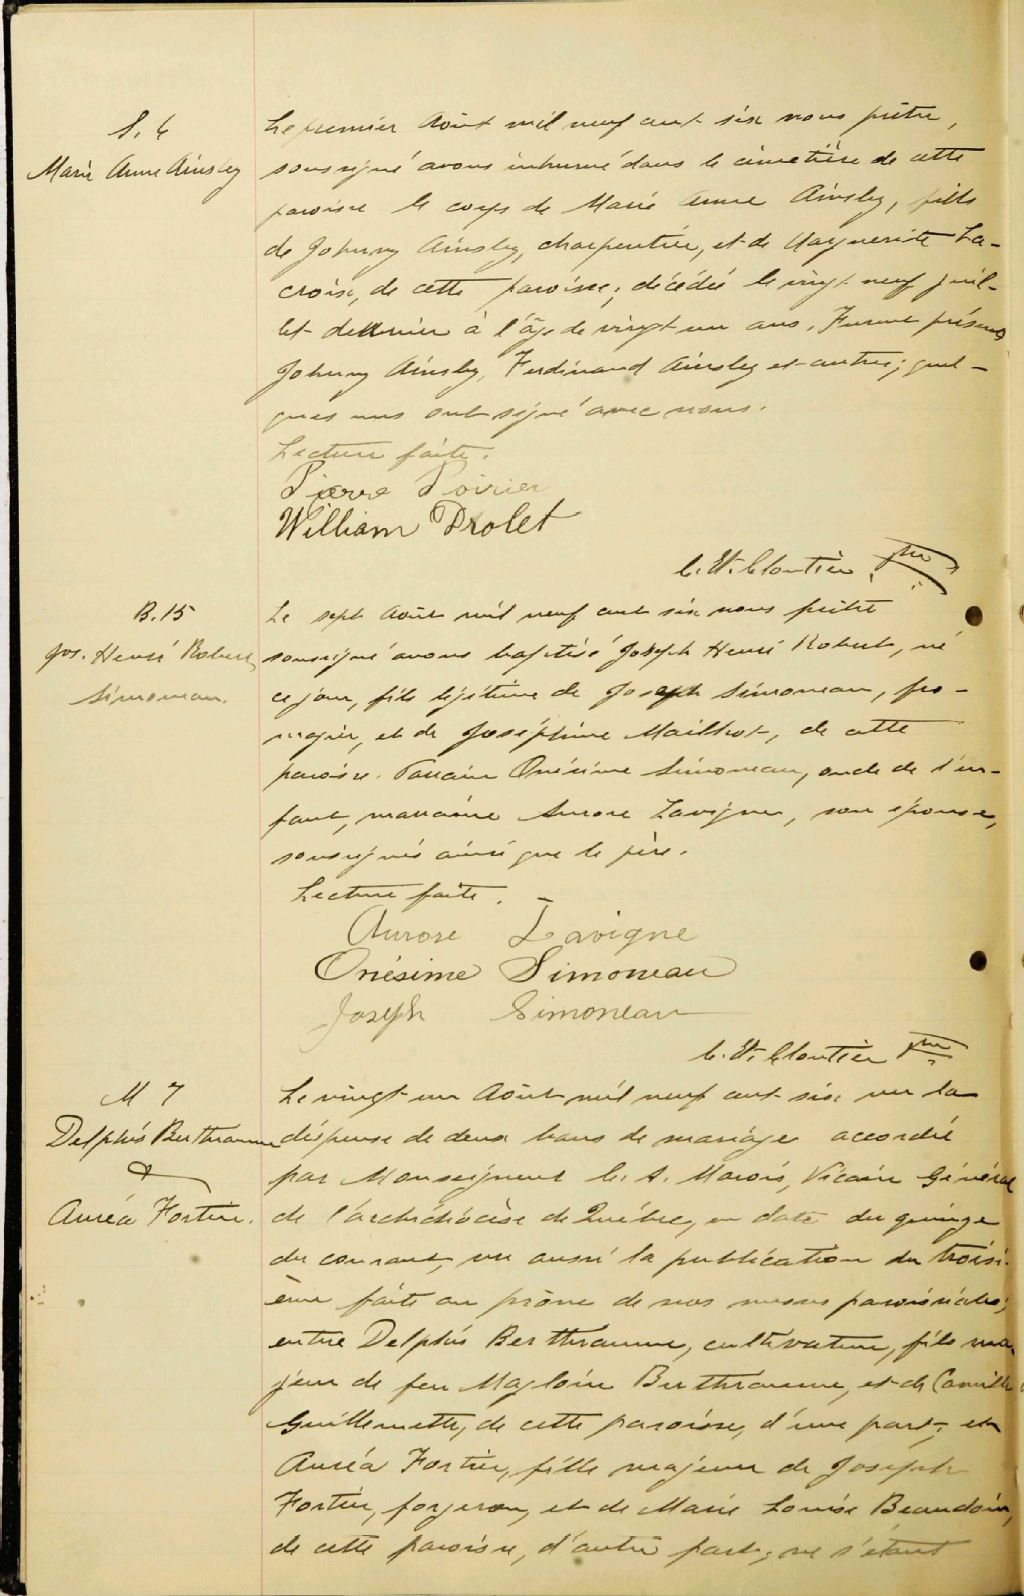 S. 6
Marie Anne Ainsley
Le premier Août mil neuf cent six nous prêtre,
soussigné avons inhumé dans le cimetière de cette
paroisse le corps de Marie Anne Ainsley, fille
de Johnny Ainsley, charpentier, et de Marguerite La-
croix, de cette paroisse; décédée le vingt neuf juil-
let dernier à l'âge de vingt un ans. Furent présents
Johnny Ainsley, Ferdinand Ainsley et autres; quel-
ques uns ont signé avec nous.
Lecture faite.
Pierre Poirier
William Drolet
C. Et. Cloutier, ptre
B. 15
Jos. Henri Robert
Simoneau.
Le sept Août mil neuf cent six nous prêtre
soussigné avons baptisé Joseph Henri Robert, né
ce jour, fils légitime de Joseph Simoneau, fro-
mager, et de Joséphine Mailhot, de cette
paroisse. Parrain Onésime Simoneau, oncle de l'en-
fant, marraine Aurore Lavigne, son épouse,
soussignés ainsi que le père.
Lecture faite.
Aurore Lavigne
Onésime Simoneau
Joseph Simoneau
C. Et. Cloutier ptre
M 7
Delphis Berthiaume
&
Auréa Fortier.
Le vingt un Août mil neuf cent six vu la
dispense de deux bans de mariage accordée
par Monseigneur C. A. Marois, Vicaire Général
de l'archidiocèse de Québec, en date du quinze
du courant, vu aussi la publication du troisi-
ème faite au prône de nos messes paroissiales;
entre Delphis Berthiaume, cultivateur, fils ma-
jeur de feu Magloire Berthiaume, et de Camille
Guillemette, de cette paroisse, d'une part; et
Auréa Fortier, fille majeure de Joseph
Fortier, forgeron, et de Marie Louise Beaudoin,
de cette paroisse, d'autre part; ne s'étant